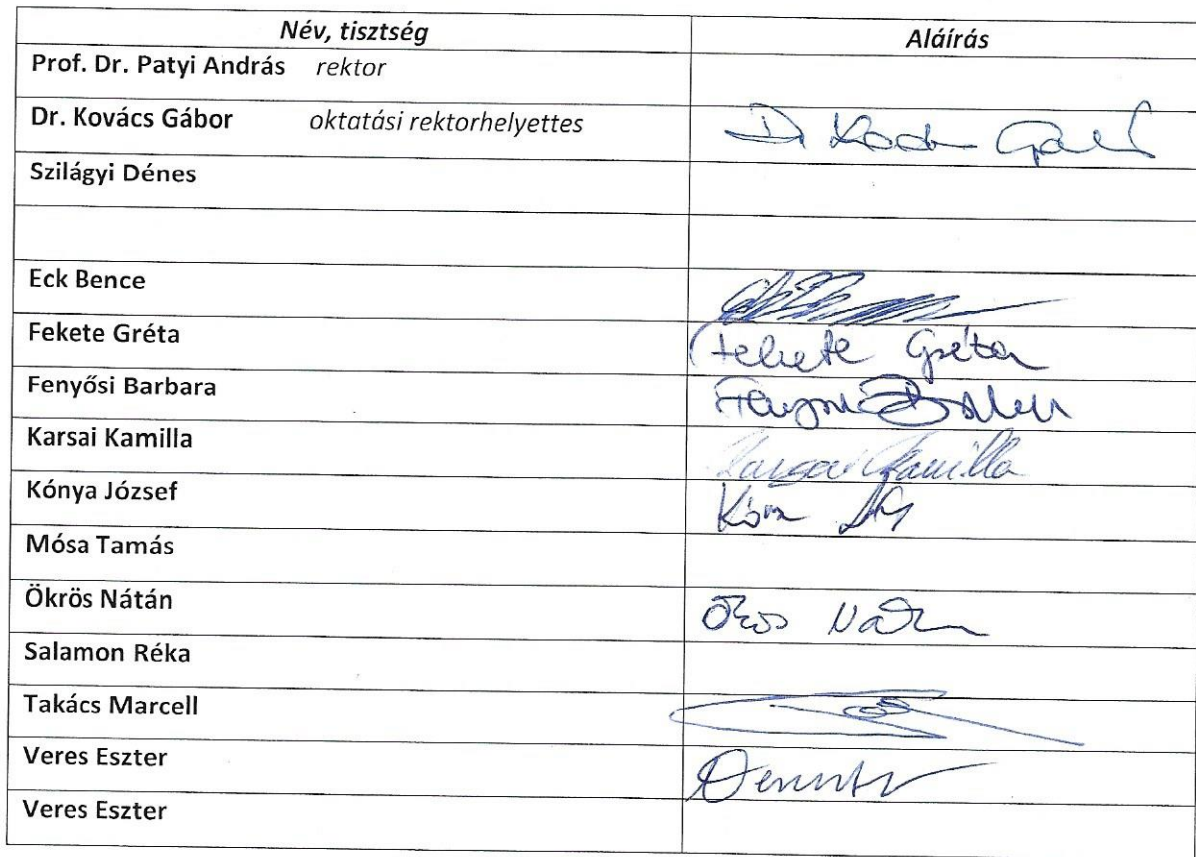 Név, tisztség Aláírás
Prof. Dr. Patyi András rektor
Dr. Kovács Gábor oktatási rektorhelyettes
Szilágyi Dénes
Eck Bence
Fekete Gréta Fekete Gréta
Fenyősi Barbara
Karsai Kamilla Karsai Kamilla
Kónya József
Mósa Tamás
Ökrös Nátán
Salamon Réka
Takács Marcell
Veres Eszter
Veres Eszter